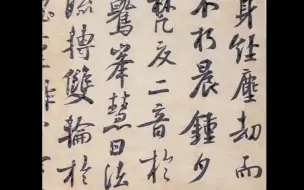 身經塵劫而
不朽晨鍾夕
梵交二音於
鷲峯慧日法
流轉雙輪於